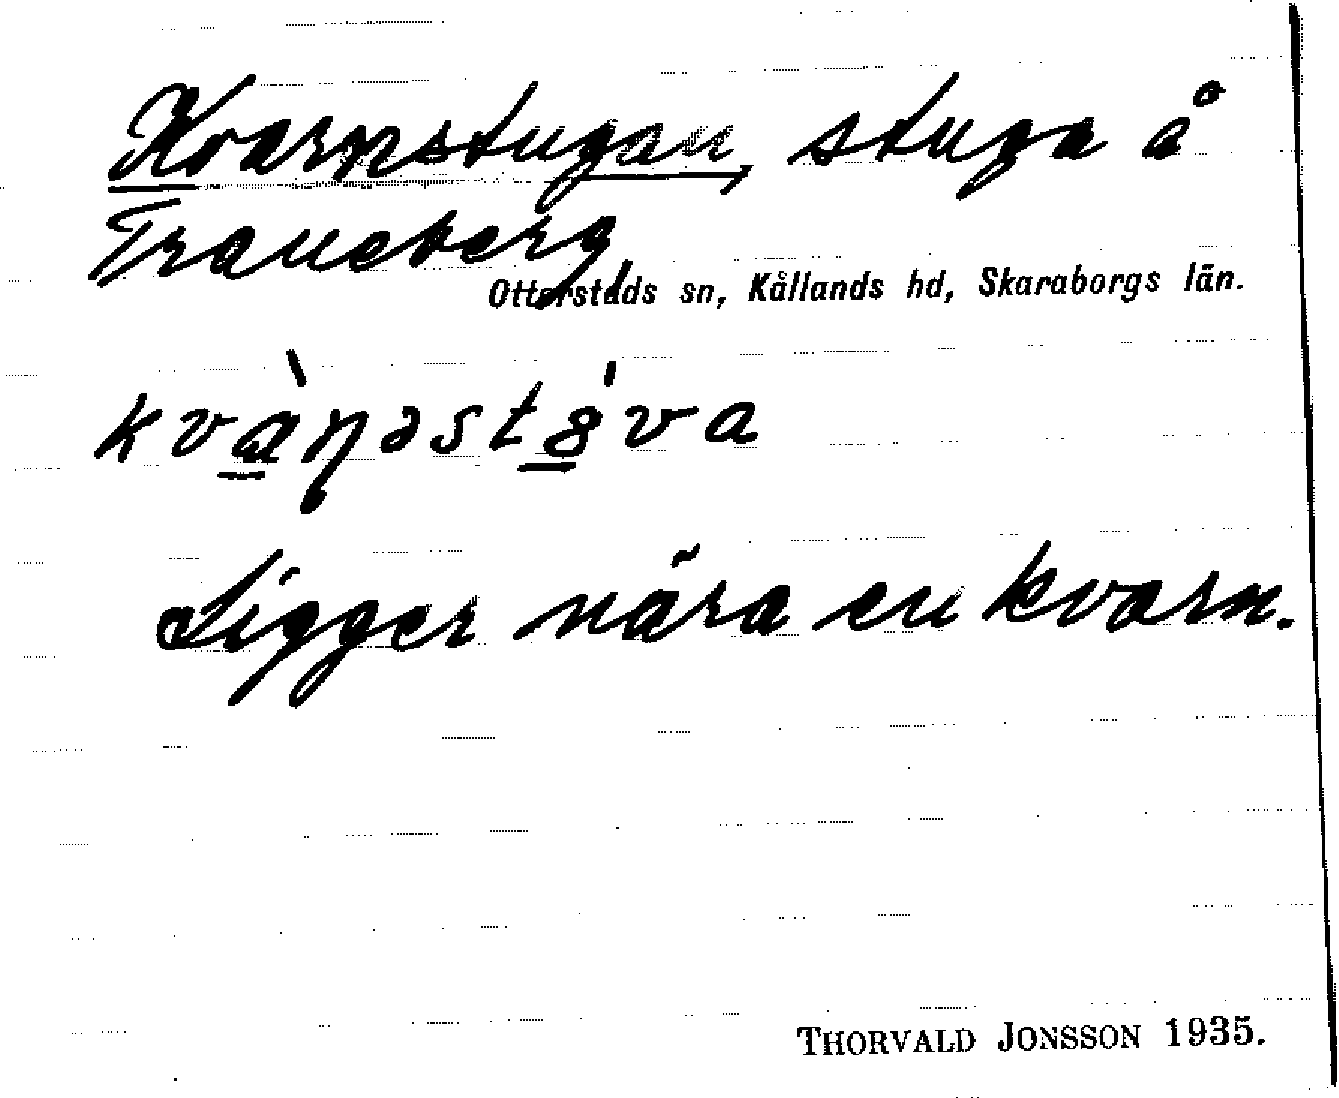 Kvarnstugan, stuga å
Traneberg,
Otterstads sn, Kållands hd, Skaraborgs län.
Ligger nära en kvarn.
THORVALD JONSSON 1935.